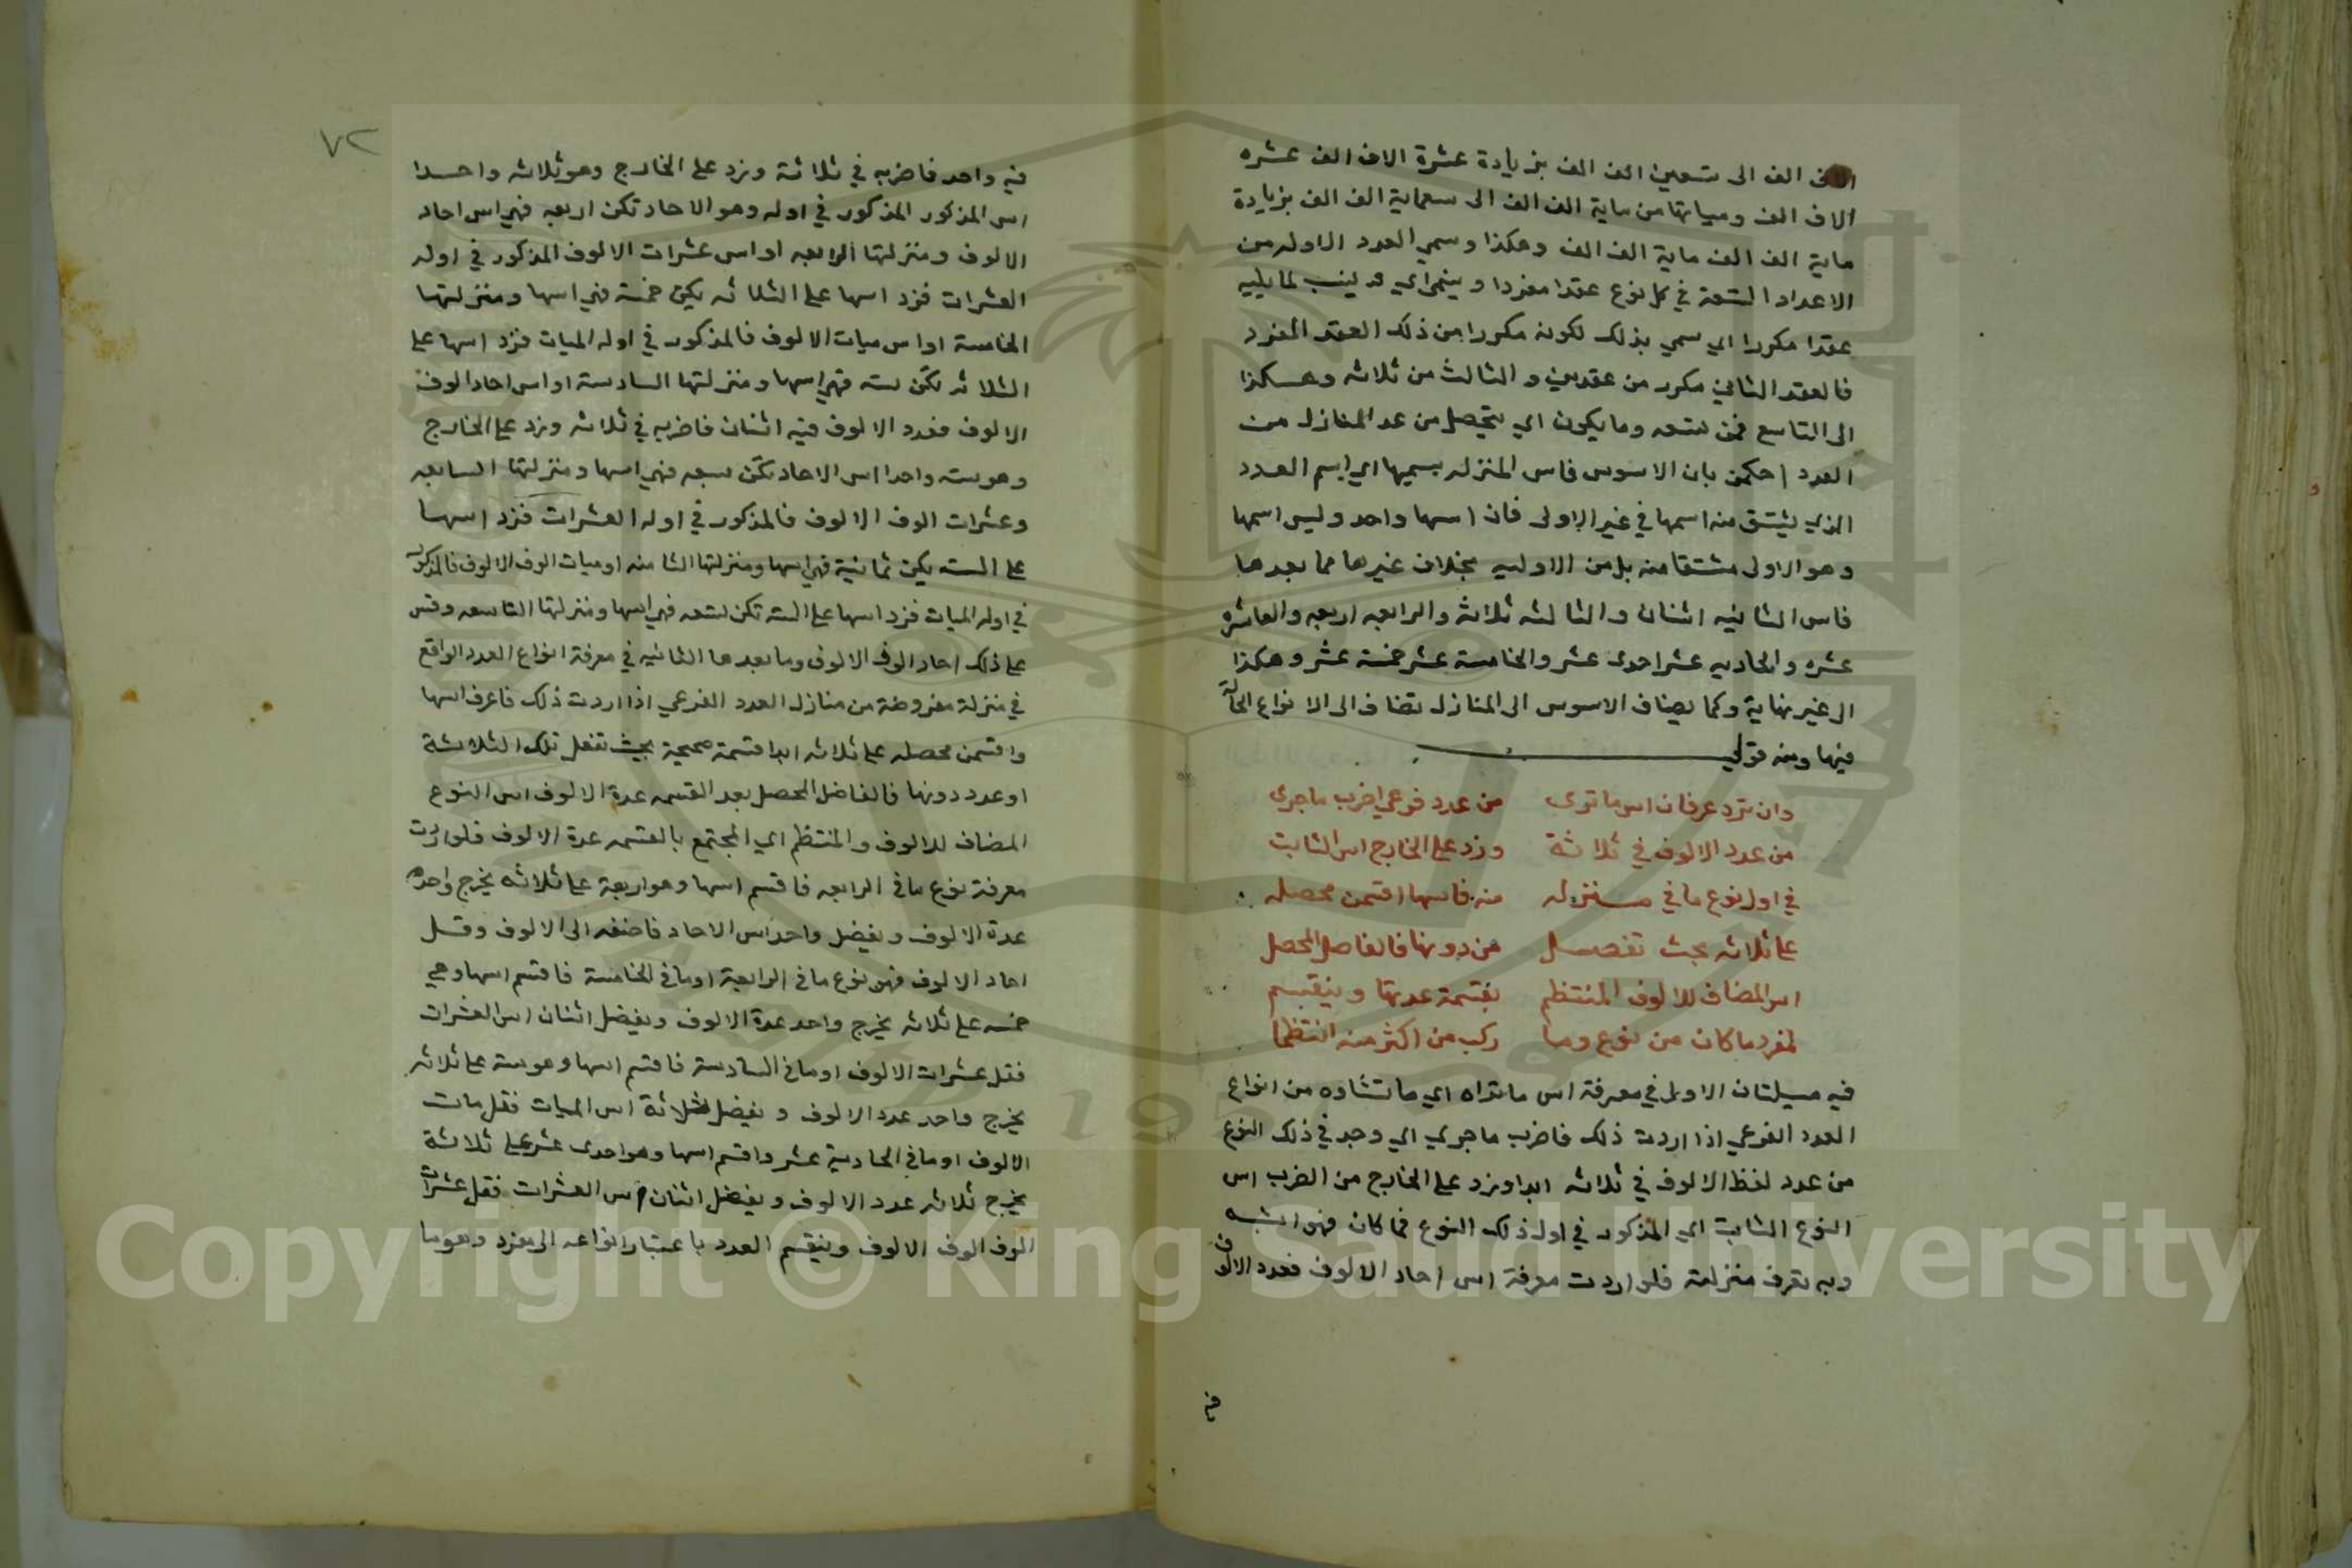 الف الى تسعين الف الف بزيادة عشرة الاف الف عشره
الاف الف ومياتها من ماية الف الف الى تسعماية الف الف بزيادة
ماية الف الف ماية الف الف وهكذا وسمي العدد الاول من
الاعداد التسعة في كل نوع عقدا مفردا وينمى اي ينسب لما يليه
عقدا مكررا اي سمي بذلك لكونه مكررا من ذلك العقد المفرد
فالعقد الثاني مكرر من عقدين والثالث من ثلاثه وهكذا
الى التاسع فمن تسعه وما يكون اي يتحصل من عد المنازل من
العدد احكمن بان الاسوس فاس المنزله يسميها اي اسم العدد
الذي يشتق منه اسمها في غير الاولى فان اسها واحد وليس اسمها
وهو الاولى مشتقا منه بل من الاوليه بخلاف غيرها مما بعدها
فاس الثانيه اثنان والثالثه ثلاثة والرابعه اربعه والعاشره
عشره والحاديه عشر احدى عشر والخامسة عشر خمسة عشر وهكذا
الى غير نهاية وكما يضاف الاسوس الى المنازل تضاف الى الانواع الحالة
فيها ومنه قولي
وان ترد عرفان اس ما ترى من عدد فرعي اضرب ما جرى
من عدد الالوف في ثلاثة وزد على الخارج اس الثابت
في اول نوع ما في منزله منه فاسها اقسمن محصله
على ثلاثه بحيث تفضل من دونها فالفاضل المحصل
اس المضاف للالوف المنتظم بقسمة عدتها وينقسم
لمفرد ما كان من نوع وما ركب من اكثر منه انتظما
فيه مسيلتان الاولى في معرفة اس ما تراه اي ما تشاوه من انواع
العدد الفرعي اذا اردت ذلك فاضرب ما جرى اي وجد في ذلك النوع
من عدد لفظ الالوف في ثلاثه ابدا وزد على الخارج من الضرب اس
النوع الثابت اي المذكور في اول ذلك النوع فما كان فهو اسه
وبه تعرف منزلته فلو اردت معرفة اس احاد الالوف فعدد الالوف
٧٢
فيه واحد فاضربه في ثلاثة وزد على الخارج وهو ثلاثه واحدا
اس المذكور المذكور في اوله وهو الاحاد تكن اربعه فهي اس احاد
الالوف ومنزلتها الرابعه او اس عشرات الالوف المذكور في اوله
العشرات فزد اسها على الثلاثه يكن خمسة فهي اسها ومنزلتها
الخامسة او اس ميات الالوف فالمذكور في اوله الميات فزد اسها على
الثلاثه تكن سته فهي اسها ومنزلتها السادسة او اس احاد الوف
الالوف فعدد الالوف فيه اثنان فاضربه في ثلاثه وزد على الخارج
وهو سته واحدا اس الاحاد تكن سبعه فهي اسها ومنزلتها السابعه
وعشرات الوف الالوف فالمذكور في اوله العشرات فزد اسها
على السته يكن ثمانية فهي اسها ومنزلتها الثامنه او ميات الوف الالوف فالمذكور
في اوله الميات فزد اسها على السته تكن تسعه فهي اسها ومنزلتها التاسعه وقس
على ذلك احاد الوف الالوف وما بعدها الثانيه في معرفة انواع العدد الواقع
في منزلة مفروضة من منازل العدد الفرعي اذا اردت ذلك فاعرف اسها
واقسمن محصله على ثلاثه ابدا قسمة صحيحة بحيث تفضل تلك الثلاثة
او عدد دونها فالفاضل المحصل بعد القسمه عدة الالوف اس النوع
المضاف للالوف والمنتظم اي المجتمع بالقسمه عدة الالوف فلو اردت
معرفة نوع ما في الرابعه فاقسم اسها وهو اربعة على ثلاثه يخرج واحد
عدة الالوف ويفضل واحد اس الاحاد فاضفه الى الالوف وقل
احاد الالوف فهو نوع ما في الرابعة او ما في الخامسة فاقسم اسها وهي
خمسه على ثلاثه يخرج واحد عدة الالوف ويفضل اثنان اس العشرات
فقل عشرات الالوف او ما في السادسة فاقسم اسها وهو سته على ثلاثه
يخرج واحد عدد الالوف ويفضل ثلاثة اس الميات فقل مات
الالوف او ما في الحادية عشر واقسم اسها وهو احدى عشر على ثلاثة
يخرج ثلاثه عدد الالوف ويفضل اثنان اس العشرات فقل عشرات
الوف الوف الالوف وينقسم العدد باعتبار انواعه الى مفرد وهو ما
Copyright © King Saud University